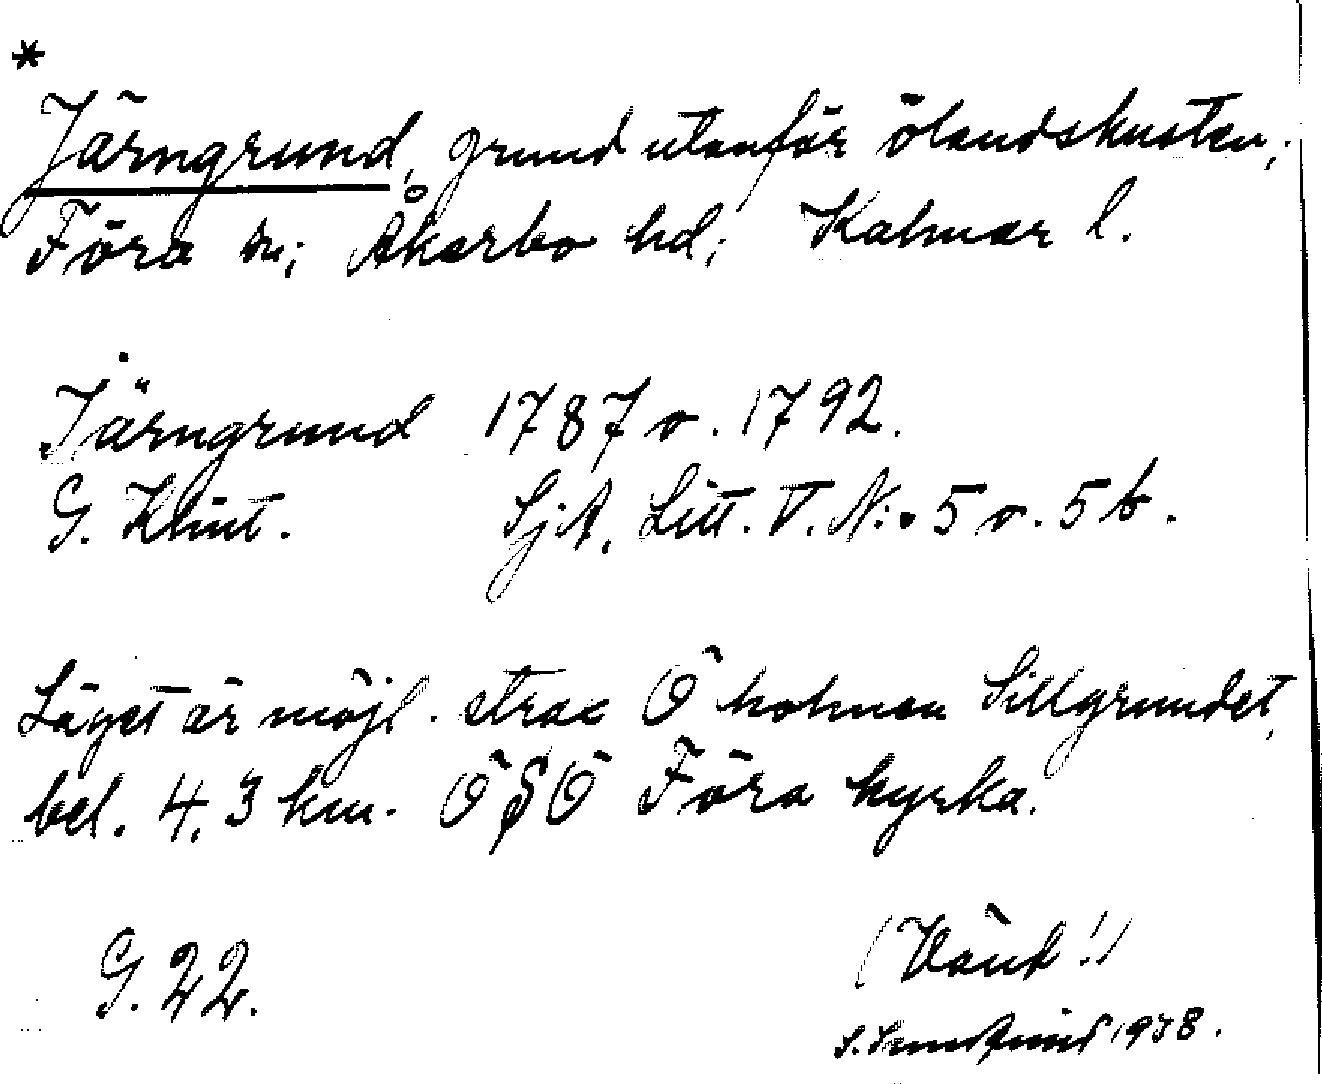 *
Järngrund, grund utanför ölandskusten,
Föra sn; Åkerbo hd; Kalmar l.
Järngrund 1787 o. 1792.
G. Klint. SjA. Litt. V. N:o 5 o. 5 b.
Läget är möjl. strax Ö holmen Sillgrundet,
bel. 4,3 km. ÖSÖ Föra kyrka.
G. 22.
(Vänd!)
1938.